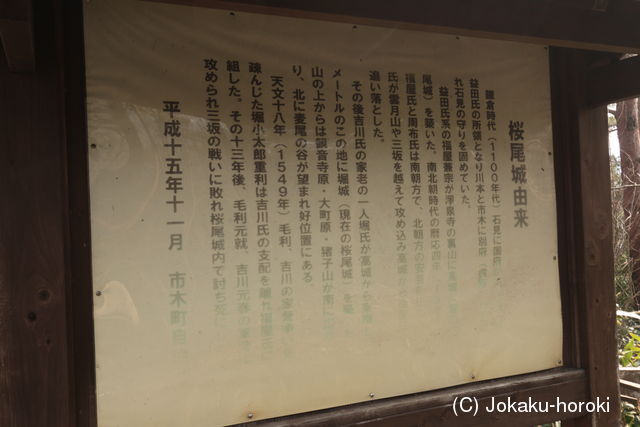 桜尾城由来
鎌倉時代（1100年代）石見に国府
益田氏の所領となり川本と市木に別府
れ石見の守りを固めていた。
益田氏系の福屋兼宗が浄泉寺の裏山に高城
尾城）を築いた。南北朝時代の暦応四年
福屋氏と周布氏は南朝方で、北朝方の安芸
氏が雲月山や三坂を越えて攻め込み高城
追い落とした。
その後吉川氏の家老の一人堀氏が高城から東
メートルのこの地に堀城（現在の桜尾城）を
山の上からは観音寺原・大町原・猪子山が南に
り、北に麦尾の谷が望まれ好位置にある。
天文十八年（1549年）毛利、吉川の家督
疎んじた堀小太郎重利は吉川氏の支配を離れ福屋氏に
組した。その十三年後、毛利元就、吉川元春の軍
攻められ三坂の戦いに敗れ桜尾城内で討ち死
平成十五年十一月 市木町自
(C) Jokaku-horoki